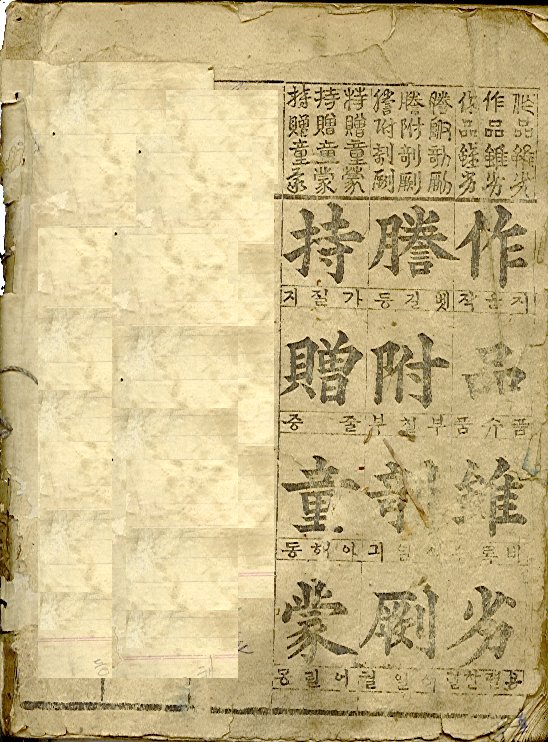 作品雖劣
作品雖劣
作品雖劣
謄附剞劂
謄附剞劂
謄附剞劂
持贈童蒙
持贈童蒙
持贈童蒙
作
지을작
品
품수품
雖
비록
劣
용렬할렬
謄
벳길등
附
부칠부
剞
긔
劂
궐
持
가질지
贈
줄증
童
아해동
蒙
어릴몽